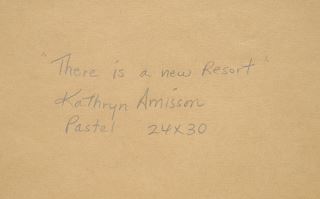 "There is a new Resort"
Kathryn Amisson
Pastel 24x30